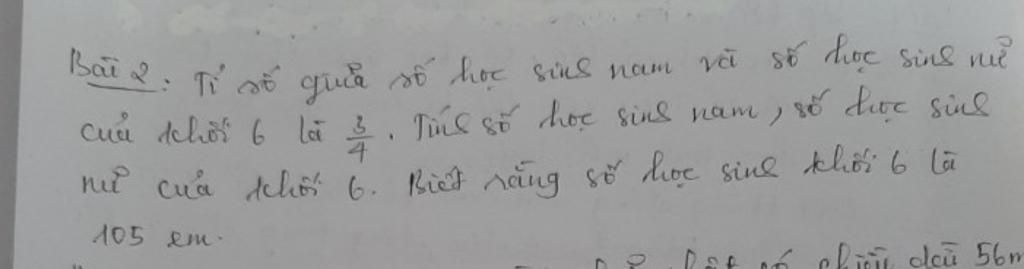 Bài 2: Tỉ số giữa số học sinh nam và số học sinh nữ
của khối 6 là 3/4. Tính số học sinh nam, số học sinh
nữ của khối 6. Biết rằng số học sinh khối 6 là
105 em.
chiều dài 56m